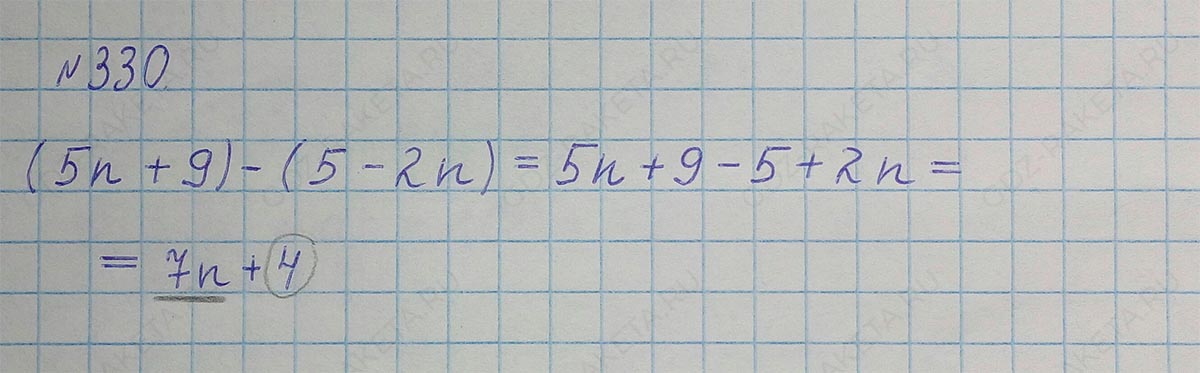 №330.
(5n + 9) - (5 - 2n) = 5n + 9 - 5 + 2n =
= 7n + 4